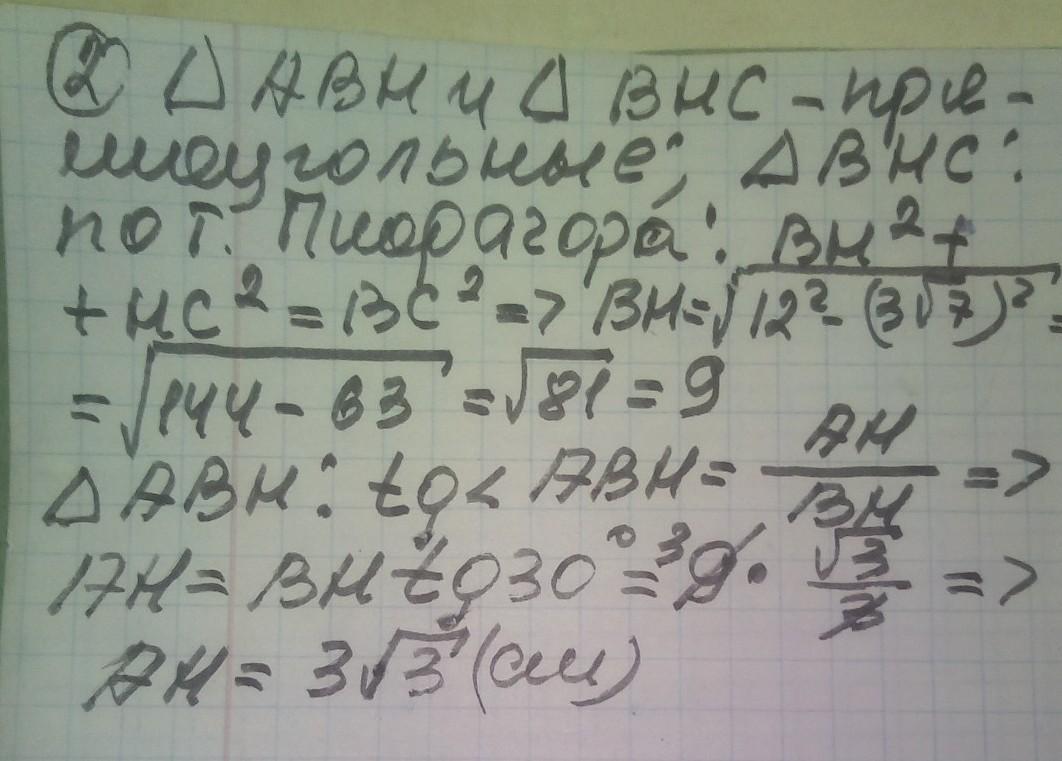 ② △ ABH и △ BHC - пря-
моугольные; △ BHC:
по т. Пифагора: BH² +
+ HC² = BC² => BH = √(12² - (3√7)²) =
= √(144 - 63) = √81 = 9
△ ABH: tg < ABH = AH/BH =>
AH = BH tg 30° = ³9 · √3/3 =>
AH = 3√3 (см)